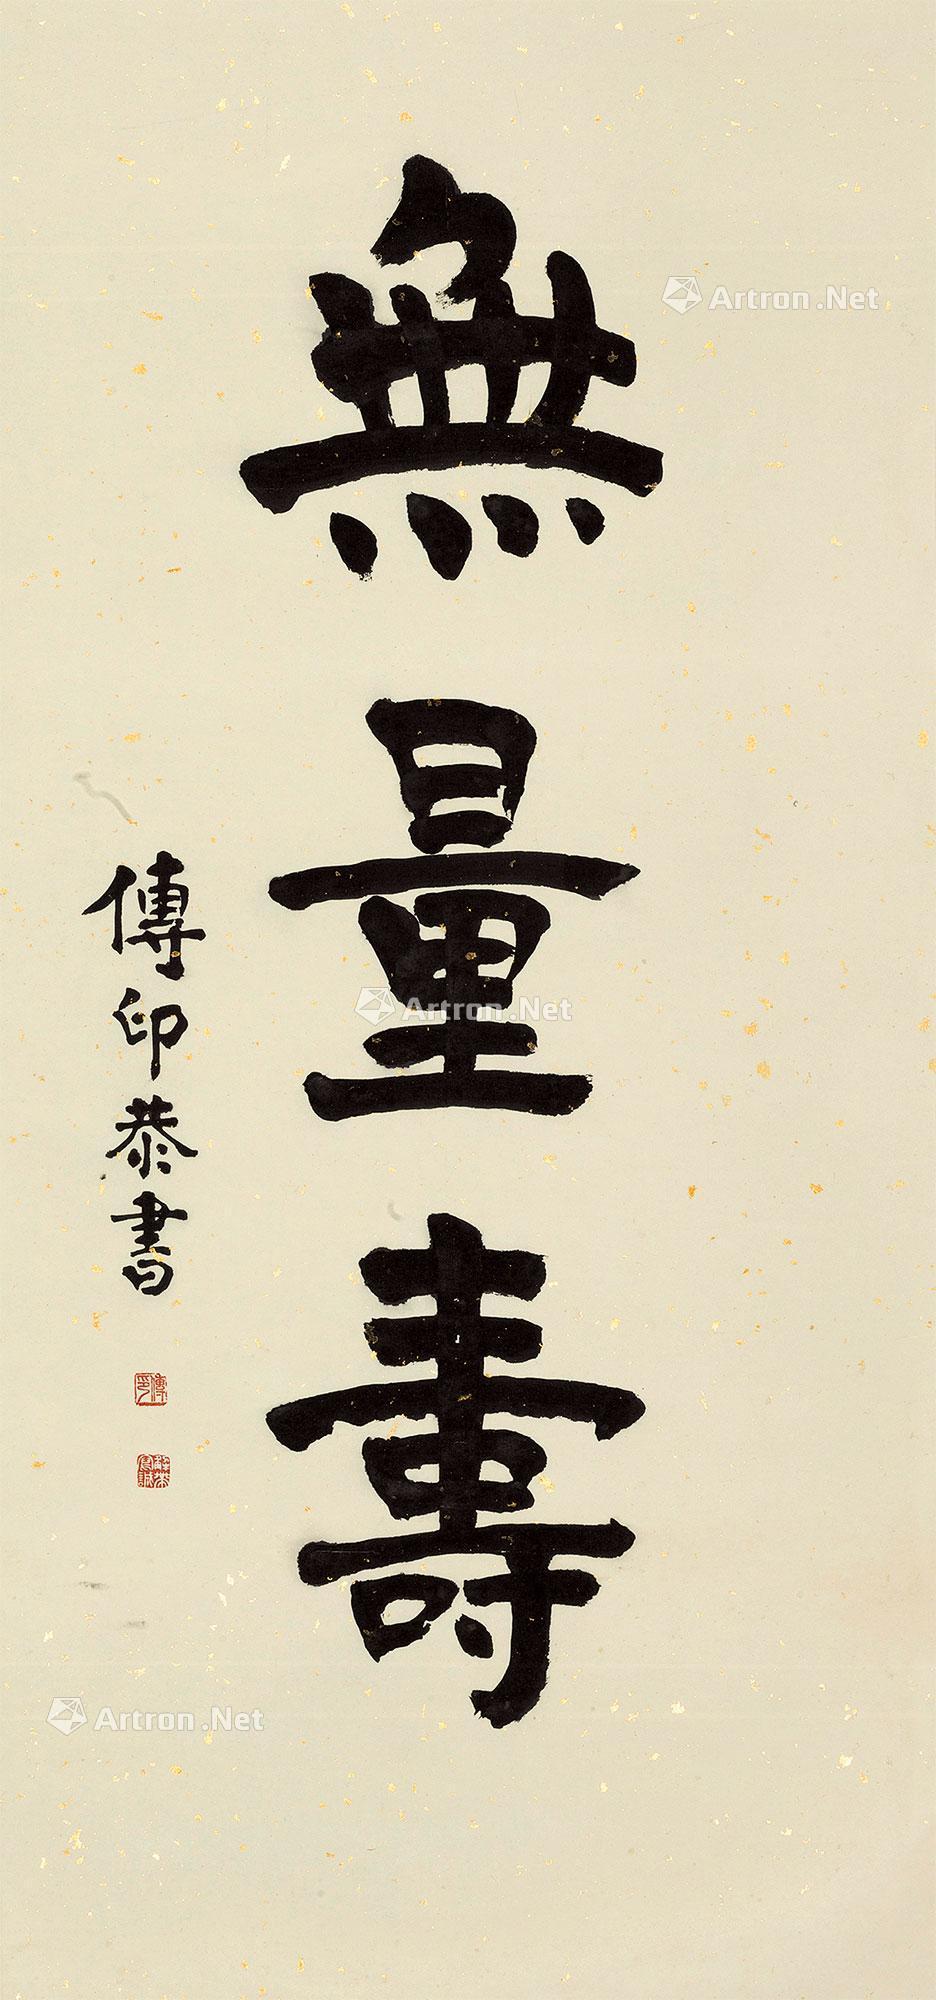 無量壽
傳印恭書
傳印
Artron.Net
Artron.Net
Artron.Net